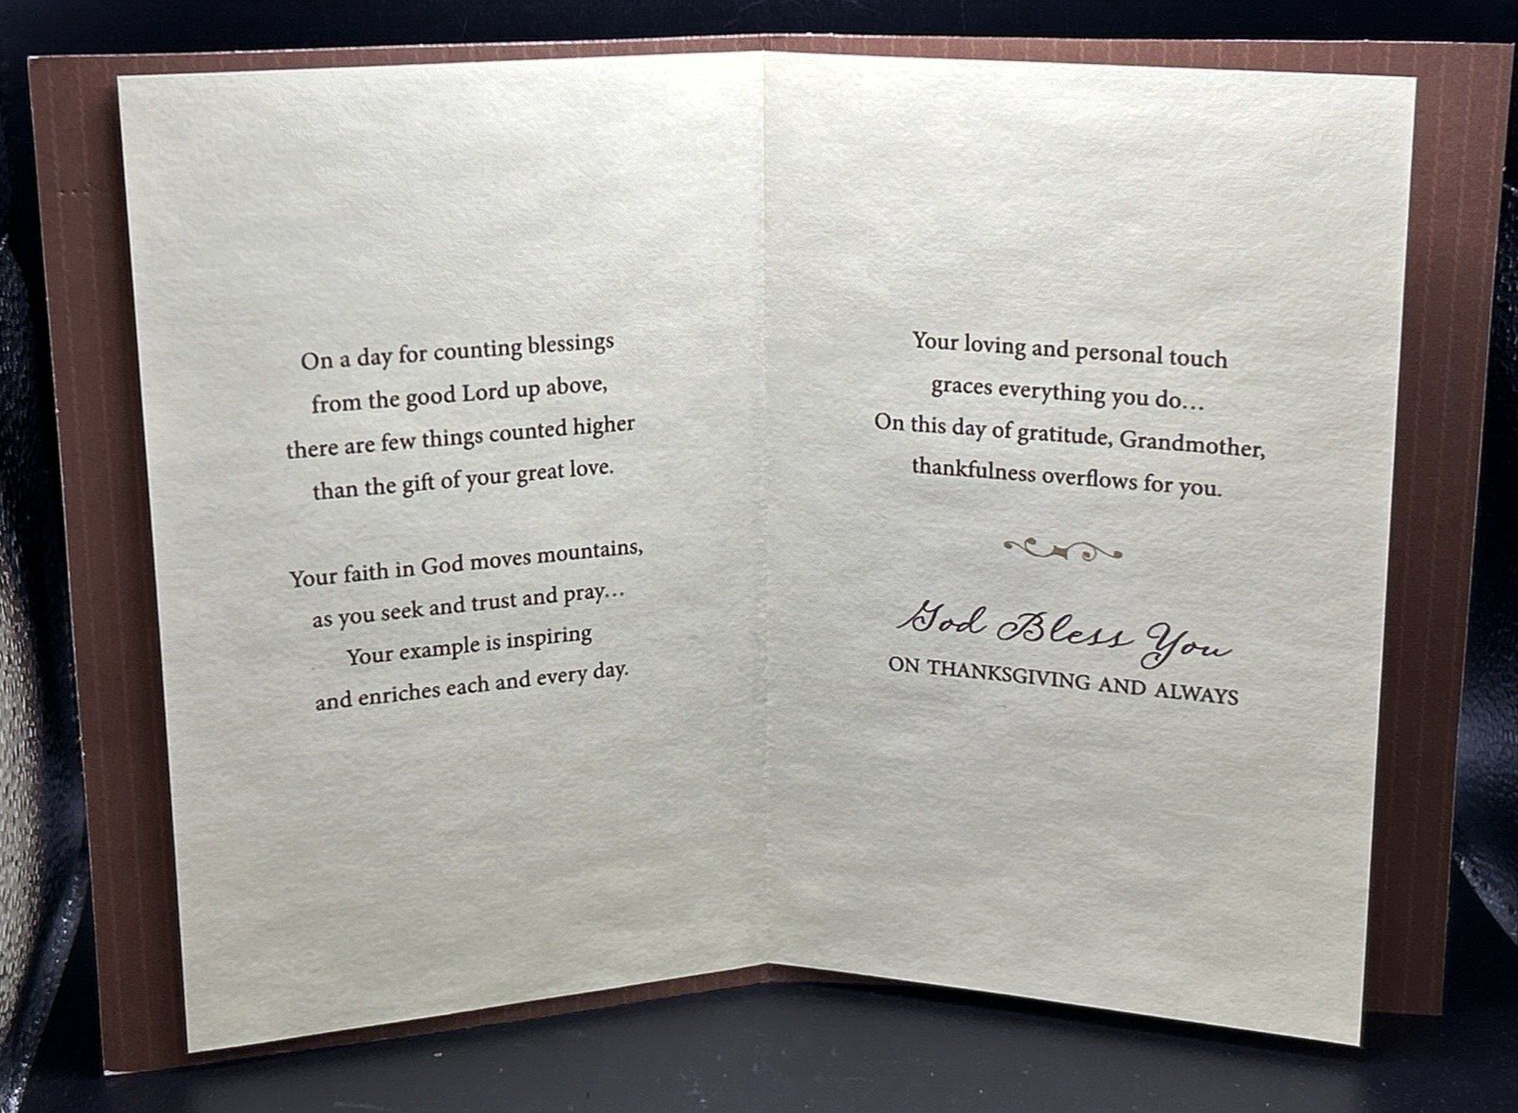 On a day for counting blessings
from the good Lord up above,
there are few things counted higher
than the gift of your great love.
Your faith in God moves mountains,
as you seek and trust and pray...
Your example is inspiring
and enriches each and every day.
Your loving and personal touch
graces everything you do...
On this day of gratitude, Grandmother,
thankfulness overflows for you.
God Bless You
ON THANKSGIVING AND ALWAYS